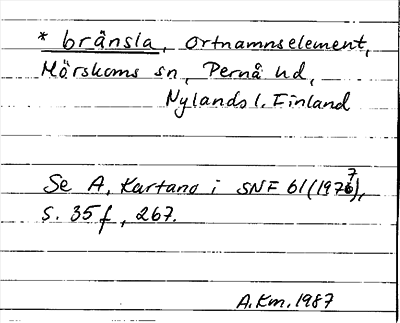 * bränsla, ortnamnselement,
Mörskoms sn, Pernå hd,
Nylands l. Finland
Se A. Kartano i SNF 61 (1977),
s. 35 f, 267.
A.Km. 1987